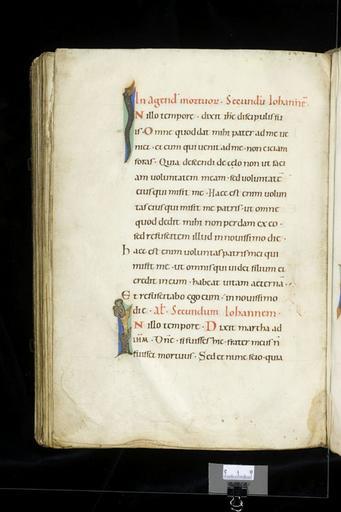 In agend' mortuor. Secundu Iohanne.
N illo tempore. dixit ihc discipulis su
is. Omne quod dat mihi pater ad me ve
niet. et eum qui venit ad me. non eiciam
foras. Quia descendi de celo non ut faci
am voluntatem meam. sed voluntate
eius qui misit me. Haec est enim volun
tas eius qui misit me patris. ut omne
quod dedit mihi non perdam ex eo.
sed resuscitem illud in novissimo die.
haec est enim voluntas patris mei qui
misit me. ut omnis qui videt filium et
credit in eum. habeat vitam aeterna.
Et resuscitabo ego eum. in novissimo
die. Al. Secundum Iohannem.
N illo tempore. Dixit martha ad
ihm. Dne. si fuisses hic. frater meus n
fuisset mortuus. Sed et nunc scio. quia